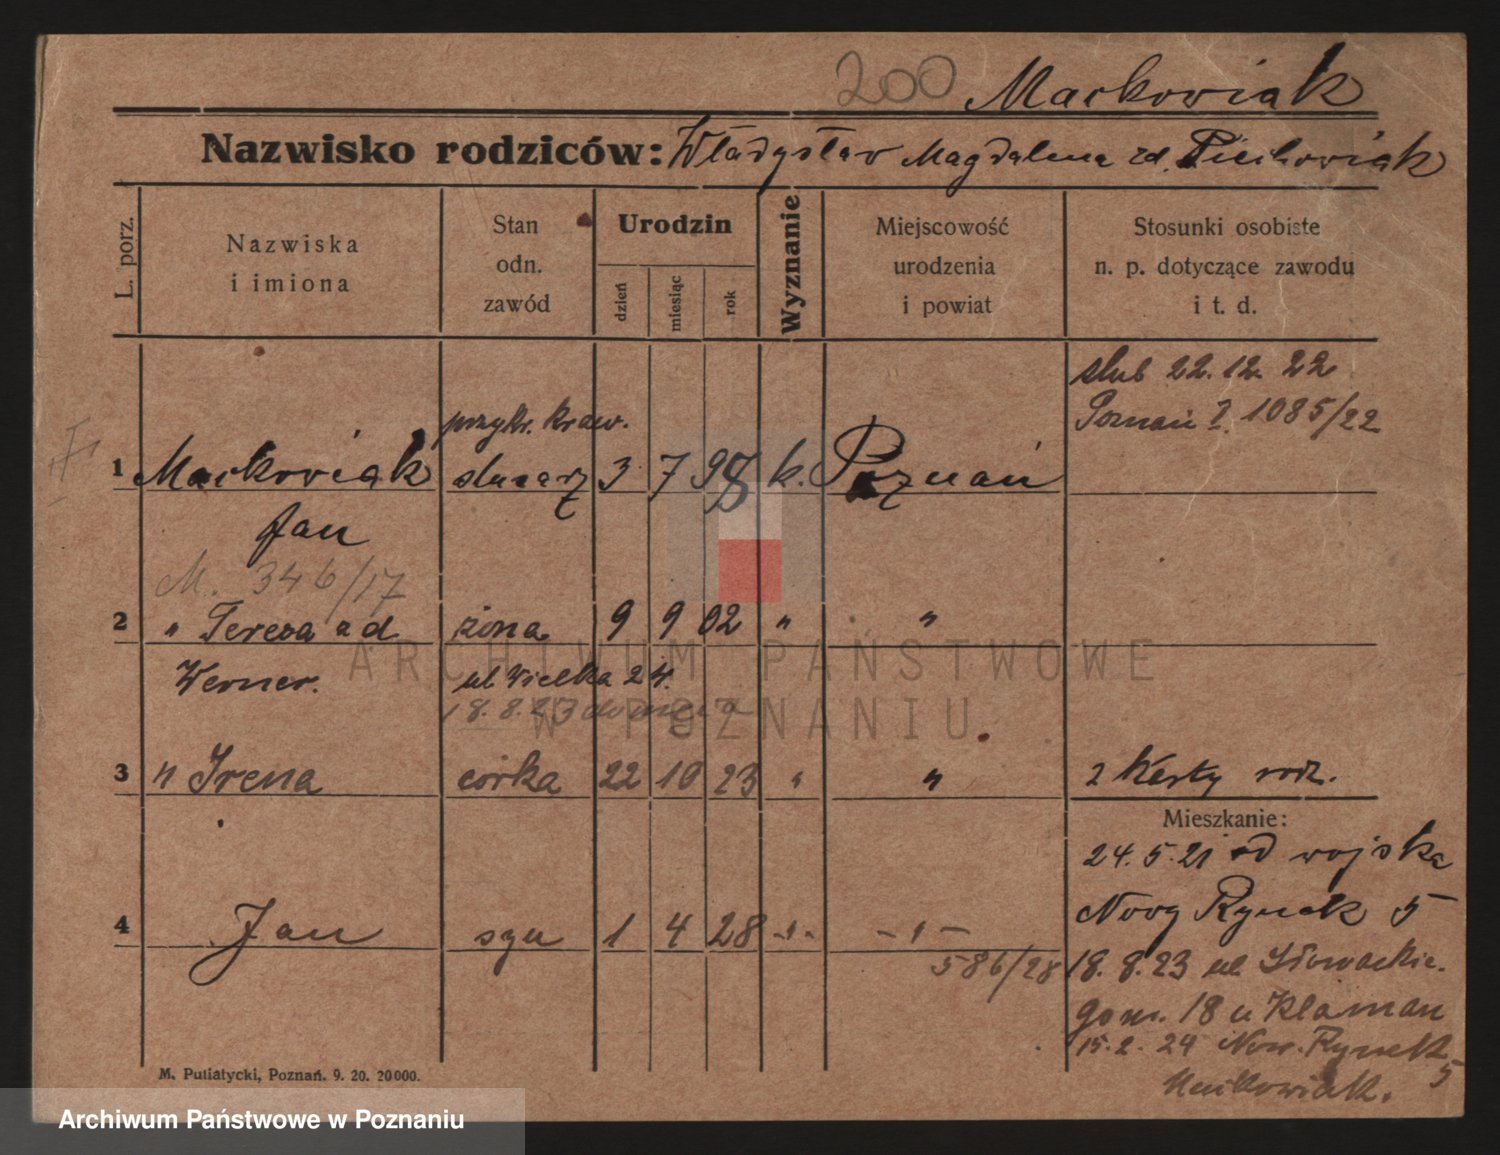 200 Maćkowiak
Nazwisko rodziców: Władysław Magdalena zd.
L. porz.
Nazwiska
i imiona
Stan
odn.
zawód
Urodzin
dzień
miesiąc
rok
Wyznanie
Miejscowość
urodzenia
i powiat
Stosunki osobiste
n. p. dotyczące zawodu
i t. d.
slub 22. 12. 22
Poznań 1085/22
przykr. kraw.
1 Maćkowiak slusarz 3 7 98 k. Poznań
Jan
M. 346/17
2 " Teresa żona 9 9 02 " "
Werner. ul Wielka 24.
18. 8. 23
3 " Irena córka 22 10 23 " " 2 Karty rodz.
Mieszkanie:
24. 5. 21 od wojska
Nowy Rynek 5
4 Jan syn 1 4 28 -"- -"-
586/28
18. 8. 23 ul Słowackie.
go nr. 18 u Klaman
15. 2. 24 Now. Rynek 5
Maćkowiak.
M. Putiatycki, Poznań. 9. 20. 20000.
ARCHIWUM PAŃSTWOWE
W POZNANIU
Archiwum Państwowe w Poznaniu